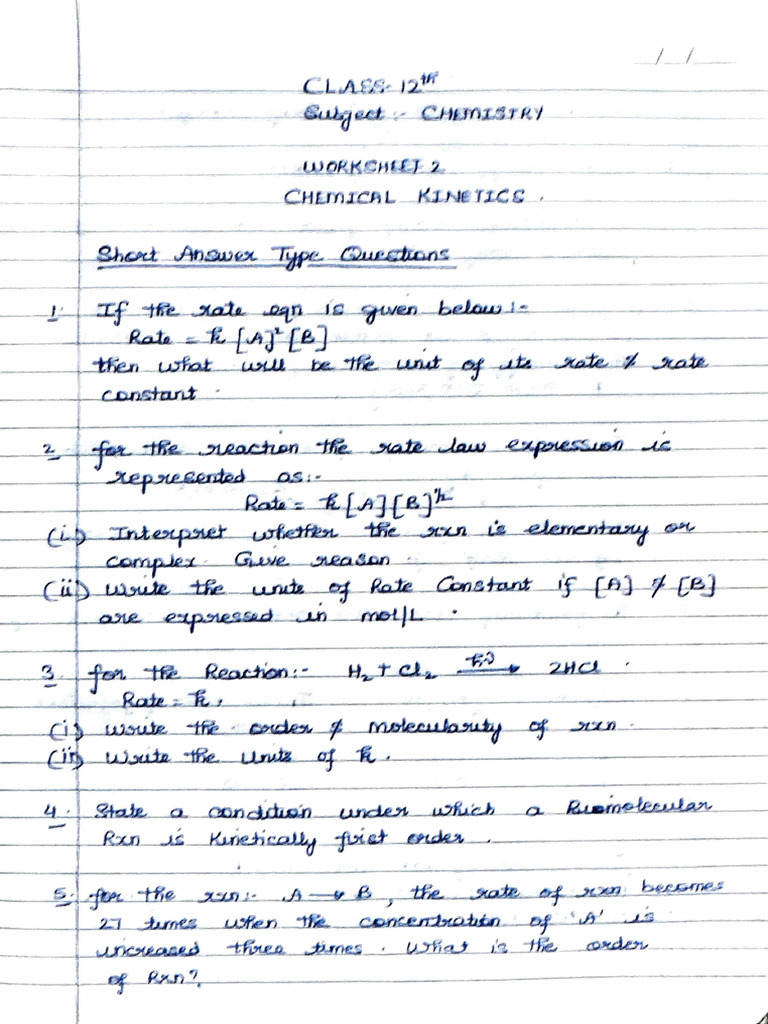 / /
CLASS- 12th
Subject :- CHEMISTRY
WORKSHEET-2
CHEMICAL KINETICS.
Short Answer Type Questions
1. If the rate eqn is given below :-
Rate = k [A]² [B]
then what will be the unit of its rate & rate
constant.
2. for the reaction the rate law expression is
represented as:-
Rate = k [A] [B]^1/2
(i) Interpret whether the rxn is elementary or
complex. Give reason.
(ii) Write the units of Rate Constant if [A] & [B]
are expressed in mol/L.
3. for the Reaction:- H₂ + Cl₂ —hν→ 2HCl.
Rate = k,
(i) Write the order & molecularity of rxn.
(ii) Write the Units of k.
4. State a condition under which a Biomolecular
Rxn is Kinetically first order.
5. for the rxn:- A → B, the rate of rxn becomes
27 times when the concentration of 'A' is
increased three times. What is the order
of Rxn?